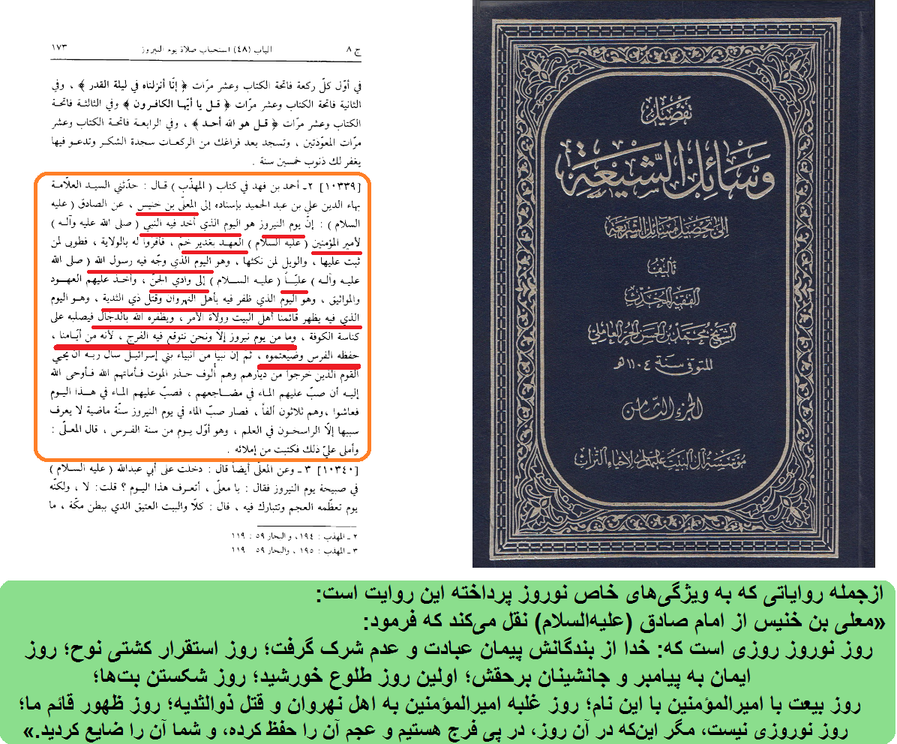 ج ٨ الباب (٤٨) استحباب صلاة يوم النيروز ١٧٣
في أوّل كلّ ركعة فاتحة الكتاب وعشر مرّات ﴿ إنّا أنزلناه في ليلة القدر ﴾ ، وفي
الثانية فاتحة الكتاب وعشر مرّات ﴿ قـل يا أيّهـا الكافـرون ﴾ وفي الثالثـة فاتحـة
الكتاب وعشر مرّات ﴿ قـل هو الله أحـد ﴾ ، وفي الرابعـة فاتحـة الكتاب وعشر
مرّات المعوّذتين ، وتسجد بعد فراغك من الركعـات سجدة الشكـر وتدعـو فيها
يغفر لك ذنوب خمسين سنة .
[١٠٣٣٩] ٢ـ أحمد بن فهد في كتاب ( المهذّب ) قـال : حدّثني السيـد العلّامـة
بهاء الدين علي بن عبد الحميد بإسناده إلى المعلّى بن خنيس ، عن الصادق ( عليه
السلام ) : إنّ يوم النيروز هو اليوم الذي أخذ فيه النبي ( صلى الله عليه وآلـه )
لأمير المؤمنين ( عليه السلام ) العهـد بغدير خم ، فأقرّوا له بالولاية ، فطوبى لمن
ثبت عليها ، والويل لمن نكثها ، وهو اليوم الذي وجّه فيه رسول الله ( صلى الله
عليـه وآلـه ) عليّــاً ( عليـه السـلام ) إلى وادي الجنّ ، وأخـذ عليهم العهـود
والمواثيق ، وهو اليوم الذي ظفر فيه بأهل النهروان وقتل ذي الثدية ، وهـو اليوم
الذي فيه يظهر قائمنا أهل البيت وولاة الأمر ، ويظفره الله بالدجّال فيصلبه على
كناسة الكوفة ، وما من يوم نيروز إلّا ونحن نتوقع فيه الفرج ، لأنّه من أيّـامنا ،
حفظه الفرس وضيّعتموه ، ثم إن نبيّا من أنبياء بني إسرائيـل سأل ربـه أن يحيي
القوم الذين خرجوا من ديارهم وهم أُلوف حـذر الموت فـأماتهم الله فـأوحى الله
إليـه أن صبّ عليهم المـاء في مضـاجعهم ، فصبّ عليهم المـاء في هـذا اليـوم
فعاشوا ، وهم ثلاثون ألفاً ، فصار صبّ الماء في يوم النيروز سنّة ماضية لا يعرف
سببها إلّا الراسخون في العلم ، وهو أوّل يـوم من سنة الفرس ، قال المعلّـى :
وأملى عليّ ذلك فكتبت من إملائه .
[١٠٣٤٠] ٣ ـ وعن المعلّى أيضاً قال : دخلت على أبي عبدالله ( عليه السـلام )
في صبيحة يوم النيروز فقال : يا معلّى ، أتعـرف هذا اليـوم ؟ قلت : لا ، ولكنّه
يوم تعظّمه العجم وتتبارك فيه ، قال : كلّا والبيت العتيق الذي ببطن مكّة ، ما
٢ ـ المهذب : ١٩٤ ، والبحار ٥٩ : ١١٩
٣ ـ المهذب : ١٩٥ ، والبحار ٥٩ : ١١٩
تفصيل
وسائل الشيعة
إلى تحصيل مسائل الشريعة
تأليف
الفقيه المحدث
الشيخ محمد بن الحسن الحر العاملي
المتوفى سنة ١١٠٤ هـ
الجزء الثامن
مؤسسة آل البيت عليهم السلام لإحياء التراث
ازجمله روایاتی که به ویژگی‌های خاص نوروز پرداخته این روایت است:
«معلی بن خنیس از امام صادق (علیه‌السلام) نقل می‌کند که فرمود:
روز نوروز روزی است که: خدا از بندگانش پیمان عبادت و عدم شرک گرفت؛ روز استقرار کشتی نوح؛ روز
ایمان به پیامبر و جانشینان برحقش؛ اولین روز طلوع خورشید؛ روز شکستن بت‌ها؛
روز بیعت با امیرالمؤمنین با این نام؛ روز غلبه امیرالمؤمنین به اهل نهروان و قتل ذوالثدیه؛ روز ظهور قائم ما؛
روز نوروزی نیست، مگر این‌که در آن روز، در پی فرج هستیم و عجم آن را حفظ کرده، و شما آن را ضایع کردید.»